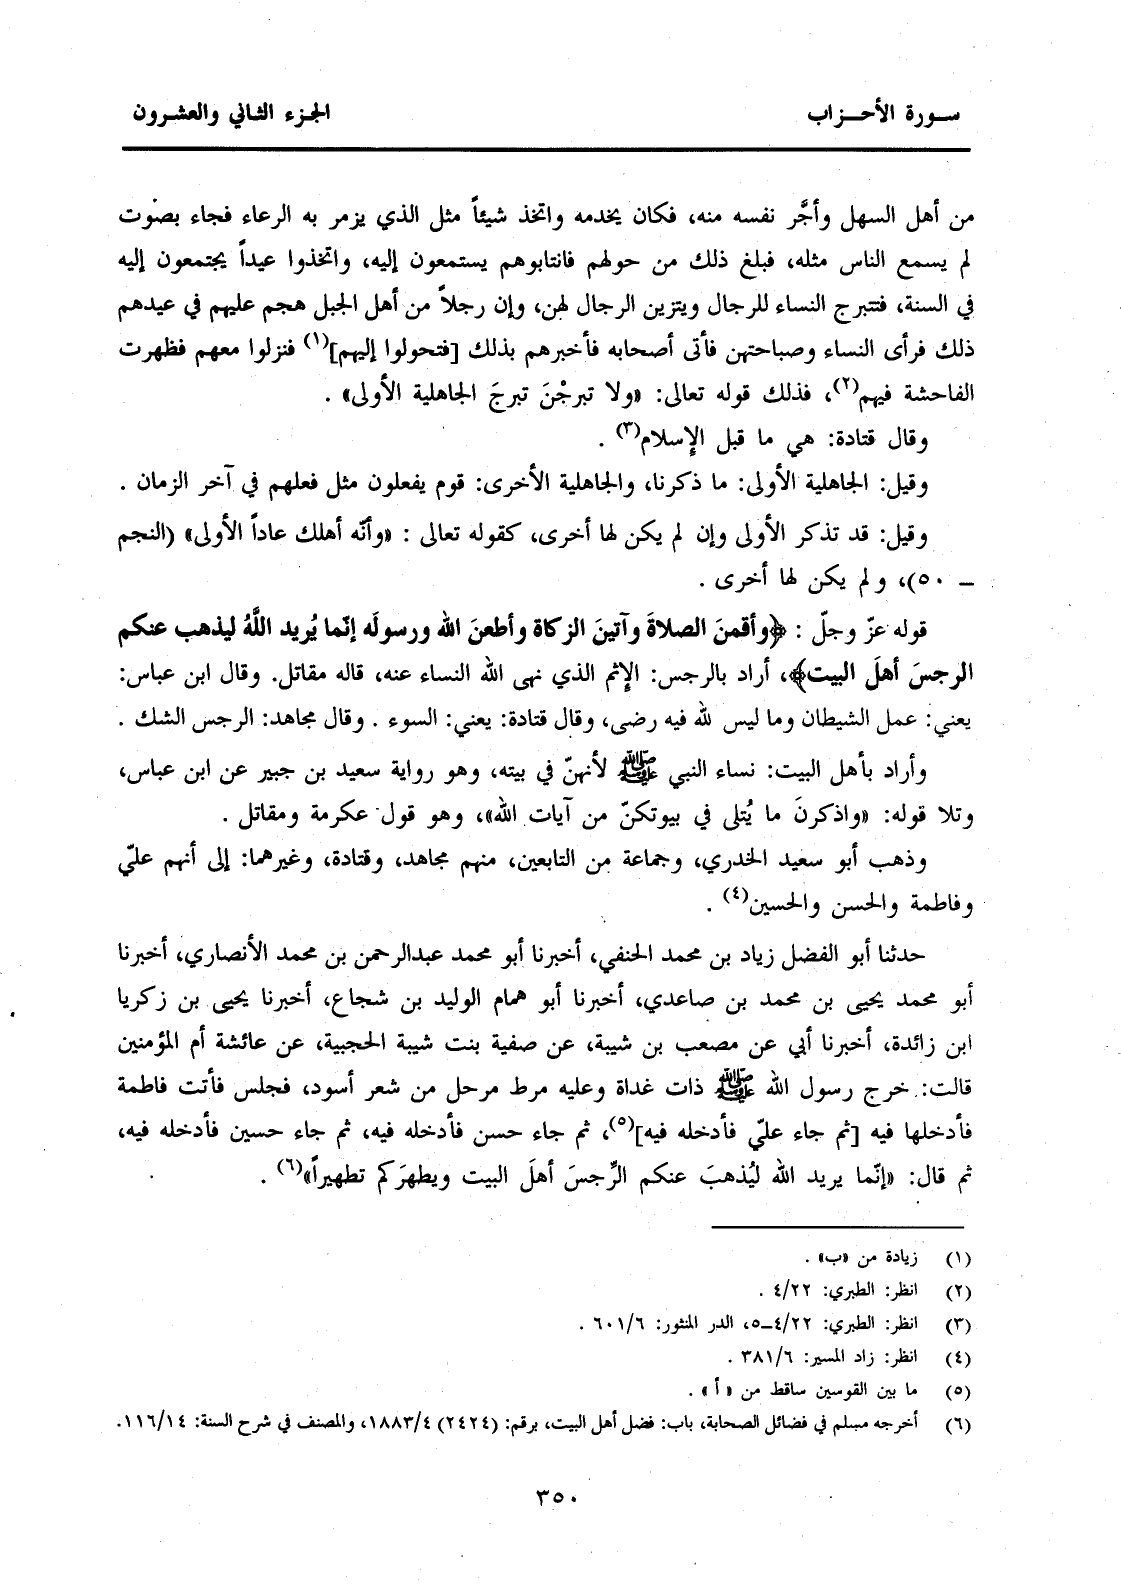 سـورة الأحـزاب
الجزء الثاني والعشرون
من أهل السهل وأجَّر نفسه منه، فكان يخدمه واتخذ شيئاً مثل الذي يزمر به الرعاء فجاء بصوت
لم يسمع الناس مثله، فبلغ ذلك من حولهم فانتابوهم يستمعون إليه، واتخذوا عيداً يجتمعون إليه
في السنة، فتتبرج النساء للرجال ويتزين الرجال لهن، وإن رجلاً من أهل الجبل هجم عليهم في عيدهم
ذلك فرأى النساء وصباحتهن فأتى أصحابه فأخبرهم بذلك [فتحولوا إليهم](١) فنزلوا معهم فظهرت
الفاحشة فيهم(٢)، فذلك قوله تعالى: «ولا تبرجْنَ تبرجَ الجاهلية الأولى» .
وقال قتادة: هي ما قبل الإسلام(٣) .
وقيل: الجاهلية الأولى: ما ذكرنا، والجاهلية الأخرى: قوم يفعلون مثل فعلهم في آخر الزمان .
وقيل: قد تذكر الأولى وإن لم يكن لها أخرى، كقوله تعالى : «وأنّه أهلك عاداً الأولى» (النجم
ــ ٥٠)، ولم يكن لها أخرى .
قوله عزّ وجلّ : ﴿وأقمنَ الصلاةَ وآتينَ الزكاة وأطعنَ الله ورسولَه إنّما يُريد اللَّهُ ليذهب عنكم
الرجسَ أهلَ البيت﴾، أراد بالرجس: الإثم الذي نهى الله النساء عنه، قاله مقاتل. وقال ابن عباس:
يعني: عمل الشيطان وما ليس لله فيه رضى، وقال قتادة: يعني: السوء . وقال مجاهد: الرجس الشك .
وأراد بأهل البيت: نساء النبي ﷺ لأنهنّ في بيته، وهو رواية سعيد بن جبير عن ابن عباس،
وتلا قوله: «واذكرنَ ما يُتلى في بيوتكنّ من آيات الله»، وهو قول عكرمة ومقاتل .
وذهب أبو سعيد الخدري، وجماعة من التابعين، منهم مجاهد، وقتادة، وغيرهما: إلى أنهم عليّ
وفاطمة والحسن والحسين(٤) .
حدثنا أبو الفضل زياد بن محمد الحنفي، أخبرنا أبو محمد عبدالرحمن بن محمد الأنصاري، أخبرنا
أبو محمد يحيى بن محمد بن صاعدي، أخبرنا أبو همام الوليد بن شجاع، أخبرنا يحيى بن زكريا
ابن زائدة، أخبرنا أبي عن مصعب بن شيبة، عن صفية بنت شيبة الحجبية، عن عائشة أم المؤمنين
قالت: خرج رسول الله ﷺ ذات غداة وعليه مرط مرحل من شعر أسود، فجلس فأتت فاطمة
فأدخلها فيه [ثم جاء عليّ فأدخله فيه](٥)، ثم جاء حسن فأدخله فيه، ثم جاء حسين فأدخله فيه،
ثم قال: «إنّما يريد الله ليُذهبَ عنكم الرِّجسَ أهلَ البيت ويطهرَكم تطهيراً»(٦) .
(١) زيادة من «ب» .
(٢) انظر: الطبري: ٤/٢٢ .
(٣) انظر: الطبري: ٤/٢٢ـ٥، الدر المنثور: ٦٠١/٦ .
(٤) انظر: زاد المسير: ٣٨١/٦ .
(٥) ما بين القوسين ساقط من «أ» .
(٦) أخرجه مسلم في فضائل الصحابة، باب: فضل أهل البيت، برقم: (٢٤٢٤) ١٨٨٣/٤، والمصنف في شرح السنة: ١١٦/١٤.
٣٥٠